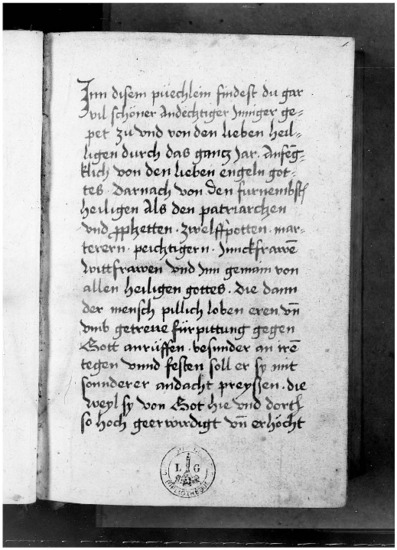 Inn disem püechlein findest du gar
vil schöner Andechtiger Inniger ge-
pet zu vnd von den lieben heil-
ligen durch das gancz Jar. Anfeg-
klich von den lieben engeln got-
tes. Darnach von den furnembst
heiligen Als den patriarchen
vnd propheten. zwelffpotten. mar-
terern. peichtigern. Junckfrawē
wittfrawen vnd Inn gemain von
allen heiligen gottes. Die dann
der mensch pillich loben eren vn̄
vmb getreue fürpittung gegen
Gott anrüffen. besunder an irē
tegen vnnd festen soll er sy mit
sonnderer andacht preyssen. die
weyl sy von Got hie vnd dort
so hoch geerwirdigt vn̄ erhöcht
L G